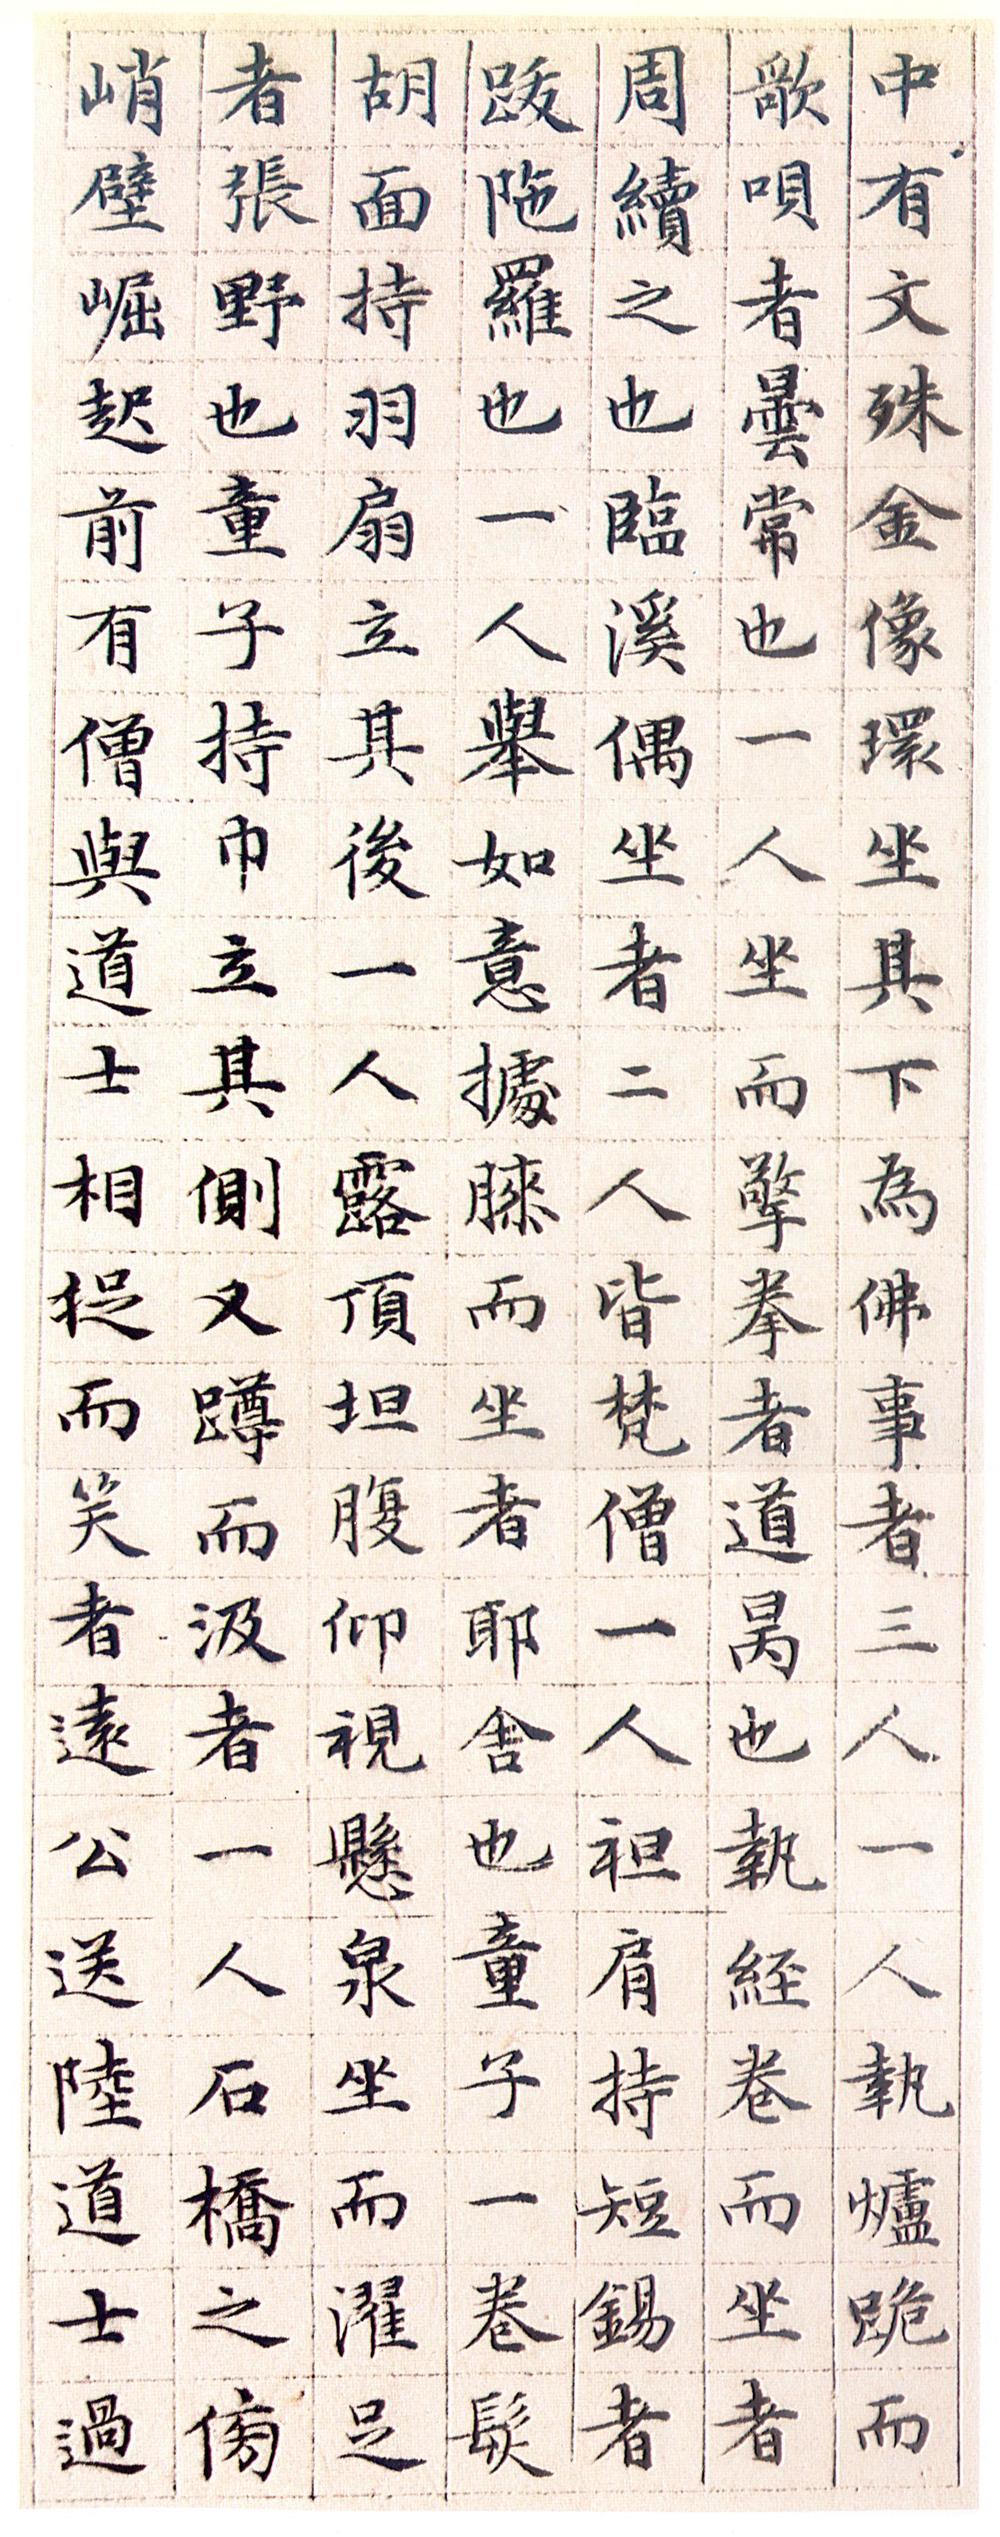 中有文殊金像環坐其下為佛事者三人一人執爐跪而
歌唄者曇常也一人坐而擎拳者道昺也執經卷而坐者
周續之也臨溪偶坐者二人皆梵僧一人袒肩持短錫者
跋陁羅也一人舉如意據膝而坐者耶舍也童子一卷髮
胡面持羽扇立其後一人露頂坦腹仰視懸泉坐而濯足
者張野也童子持巾立其側又蹲而汲者一人石橋之傍
峭壁崛起前有僧與道士相捉而笑者遠公送陸道士過